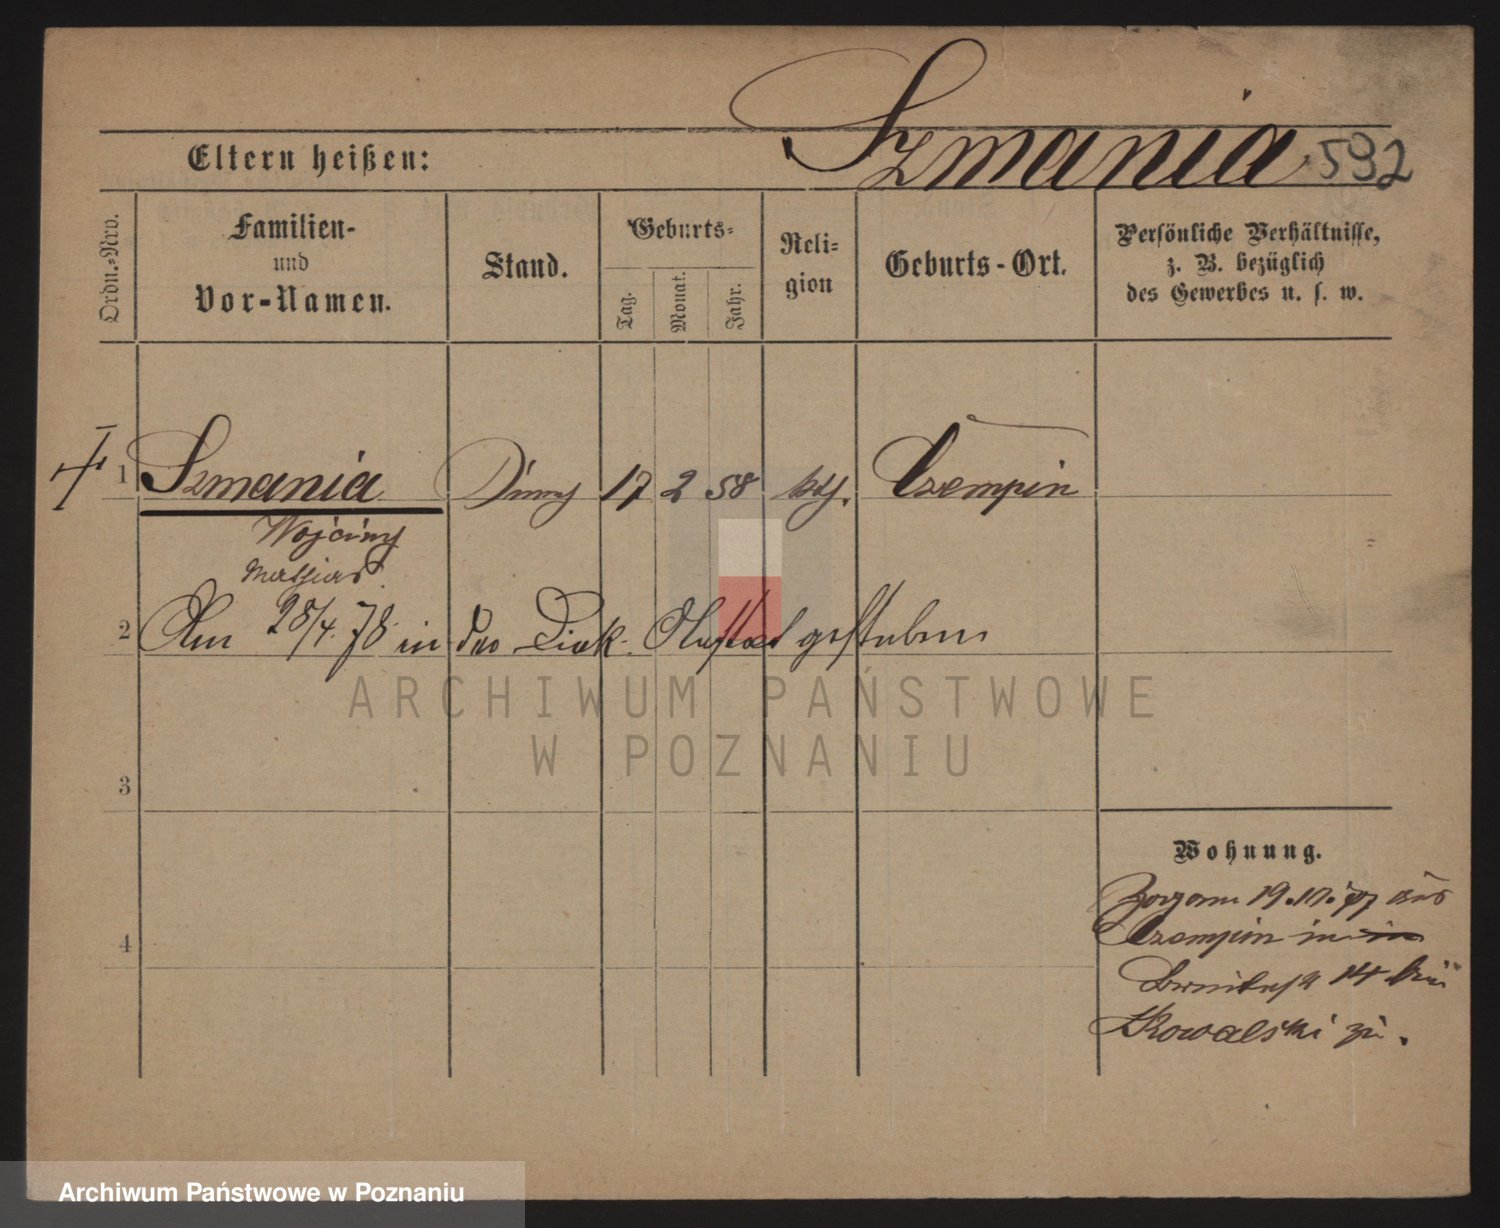 Szmania 592
Eltern heißen:
Ordn.-Nro.
Familien-
und
Vor-Namen.
Stand.
Geburts-
Tag.
Monat.
Jahr.
Reli-
gion
Geburts-Ort.
Persönliche Verhältnisse,
z. B. bezüglich
des Gewerbes u. s. w.
1 Szmania 17 2 58 kth. Czempin
2 Am 28/4. 78 in der Diak. Anstalt gestorben
ARCHIWUM PAŃSTWOWE
W POZNANIU
3
Wohnung.
Zugang 19. 77 aus
Czempin in in
14 bei
Kowalski zu.
4
Archiwum Państwowe w Poznaniu